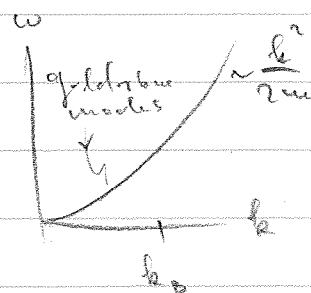 ω
goldstone
modes
~ k²/2m
k
k_B